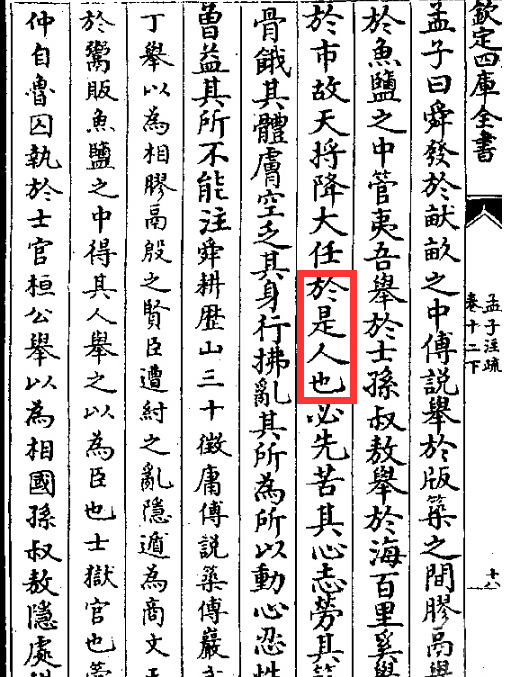 欽定四庫全書
孟子注疏
卷十二下
十八
孟子曰舜發於畎畝之中傅說舉於版築之間膠鬲舉
於魚鹽之中管夷吾舉於士孫叔敖舉於海百里奚舉
於市故天將降大任於是人也必先苦其心志勞其筋
骨餓其體膚空乏其身行拂亂其所為所以動心忍性
曾益其所不能注舜耕歴山三十徵庸傅說築傅巖武
丁舉以為相膠鬲殷之賢臣遭紂之亂隱遁為商文王
於鬻販魚鹽之中得其人舉之以為臣也士獄官也管
仲自魯囚執於士官桓公舉以為相國孫叔敖隱處